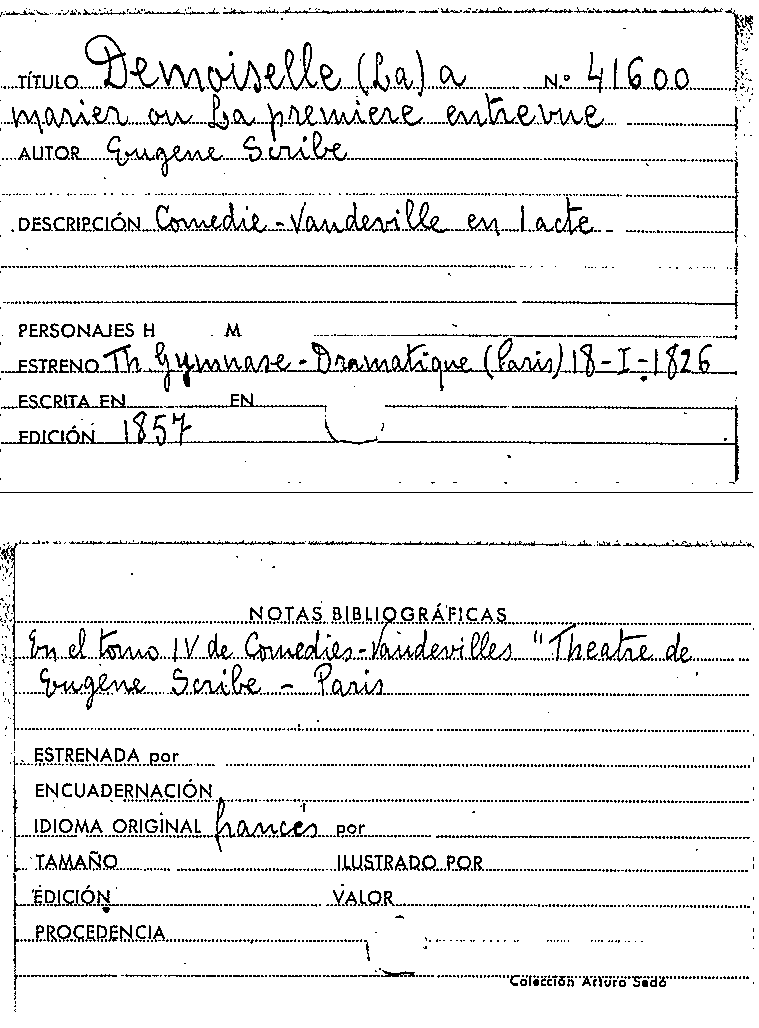 TÍTULO Demoiselle (La) a Nº 41600
marier ou La premiere entrevue
AUTOR Eugene Scribe
DESCRIPCIÓN Comedie-Vaudeville en 1 acte
PERSONAJES H M
ESTRENO Th Gymnase-Dramatique (Paris) 18-I-1826
ESCRITA EN EN
EDICIÓN 1857
NOTAS BIBLIOGRÁFICAS
En el tomo IV de Comedies-Vaudevilles "Theatre de
Eugene Scribe - Paris
ESTRENADA por
ENCUADERNACIÓN
IDIOMA ORIGINAL francés por
TAMAÑO ILUSTRADO POR
EDICIÓN VALOR
PROCEDENCIA
Colección Arturo Sedó